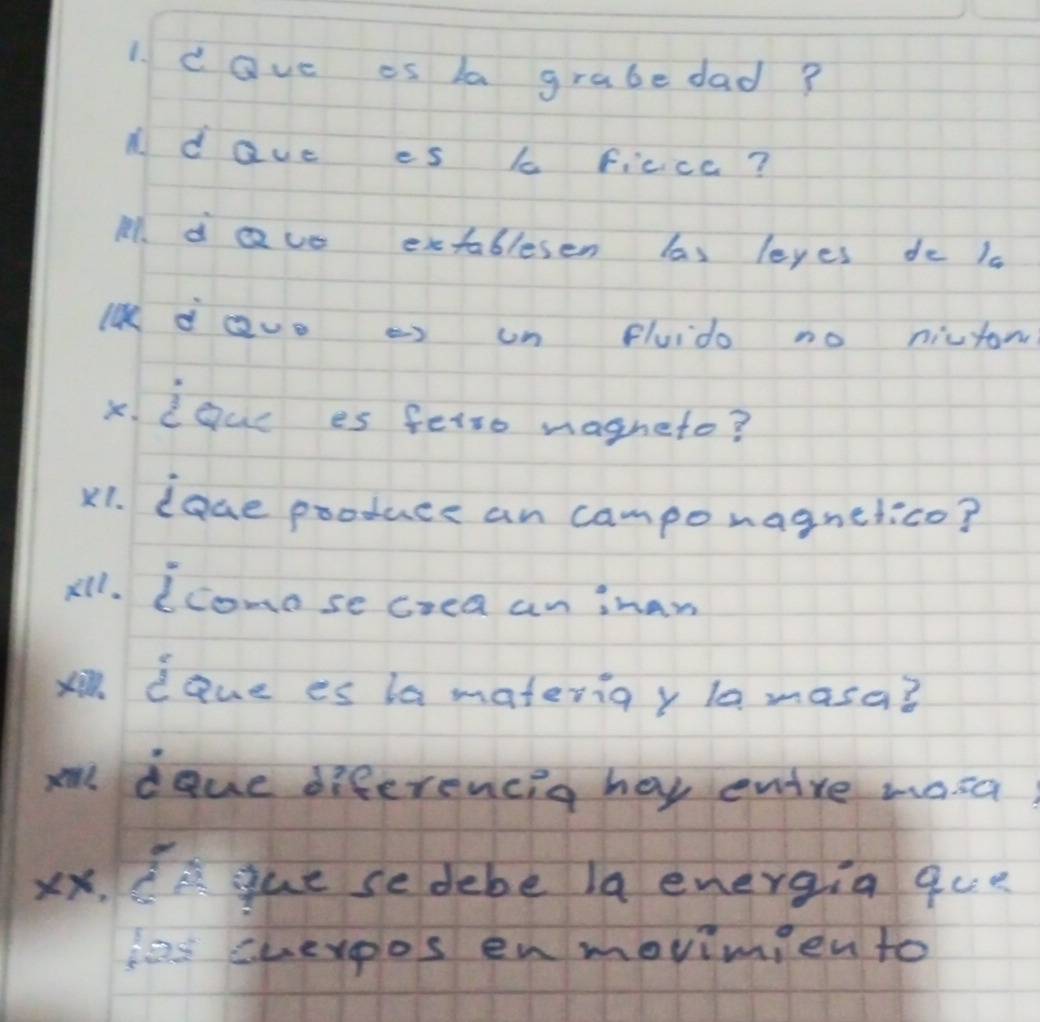 I. ¿Que es la grabedad?
II. ¿Que es la ficica?
III. ¿Que extablesen las leyes de la
¿Que es un fluido no niuton
X. ¿Que es ferro magneto?
XI. ¿Que produce un campo magnetico?
XII. ¿como se crea un iman
XIII. ¿Que es la materia y la masa?
¿que diferencia hay entre masa
XX. ¿A que se debe la energia que
los cuerpos en movimiento